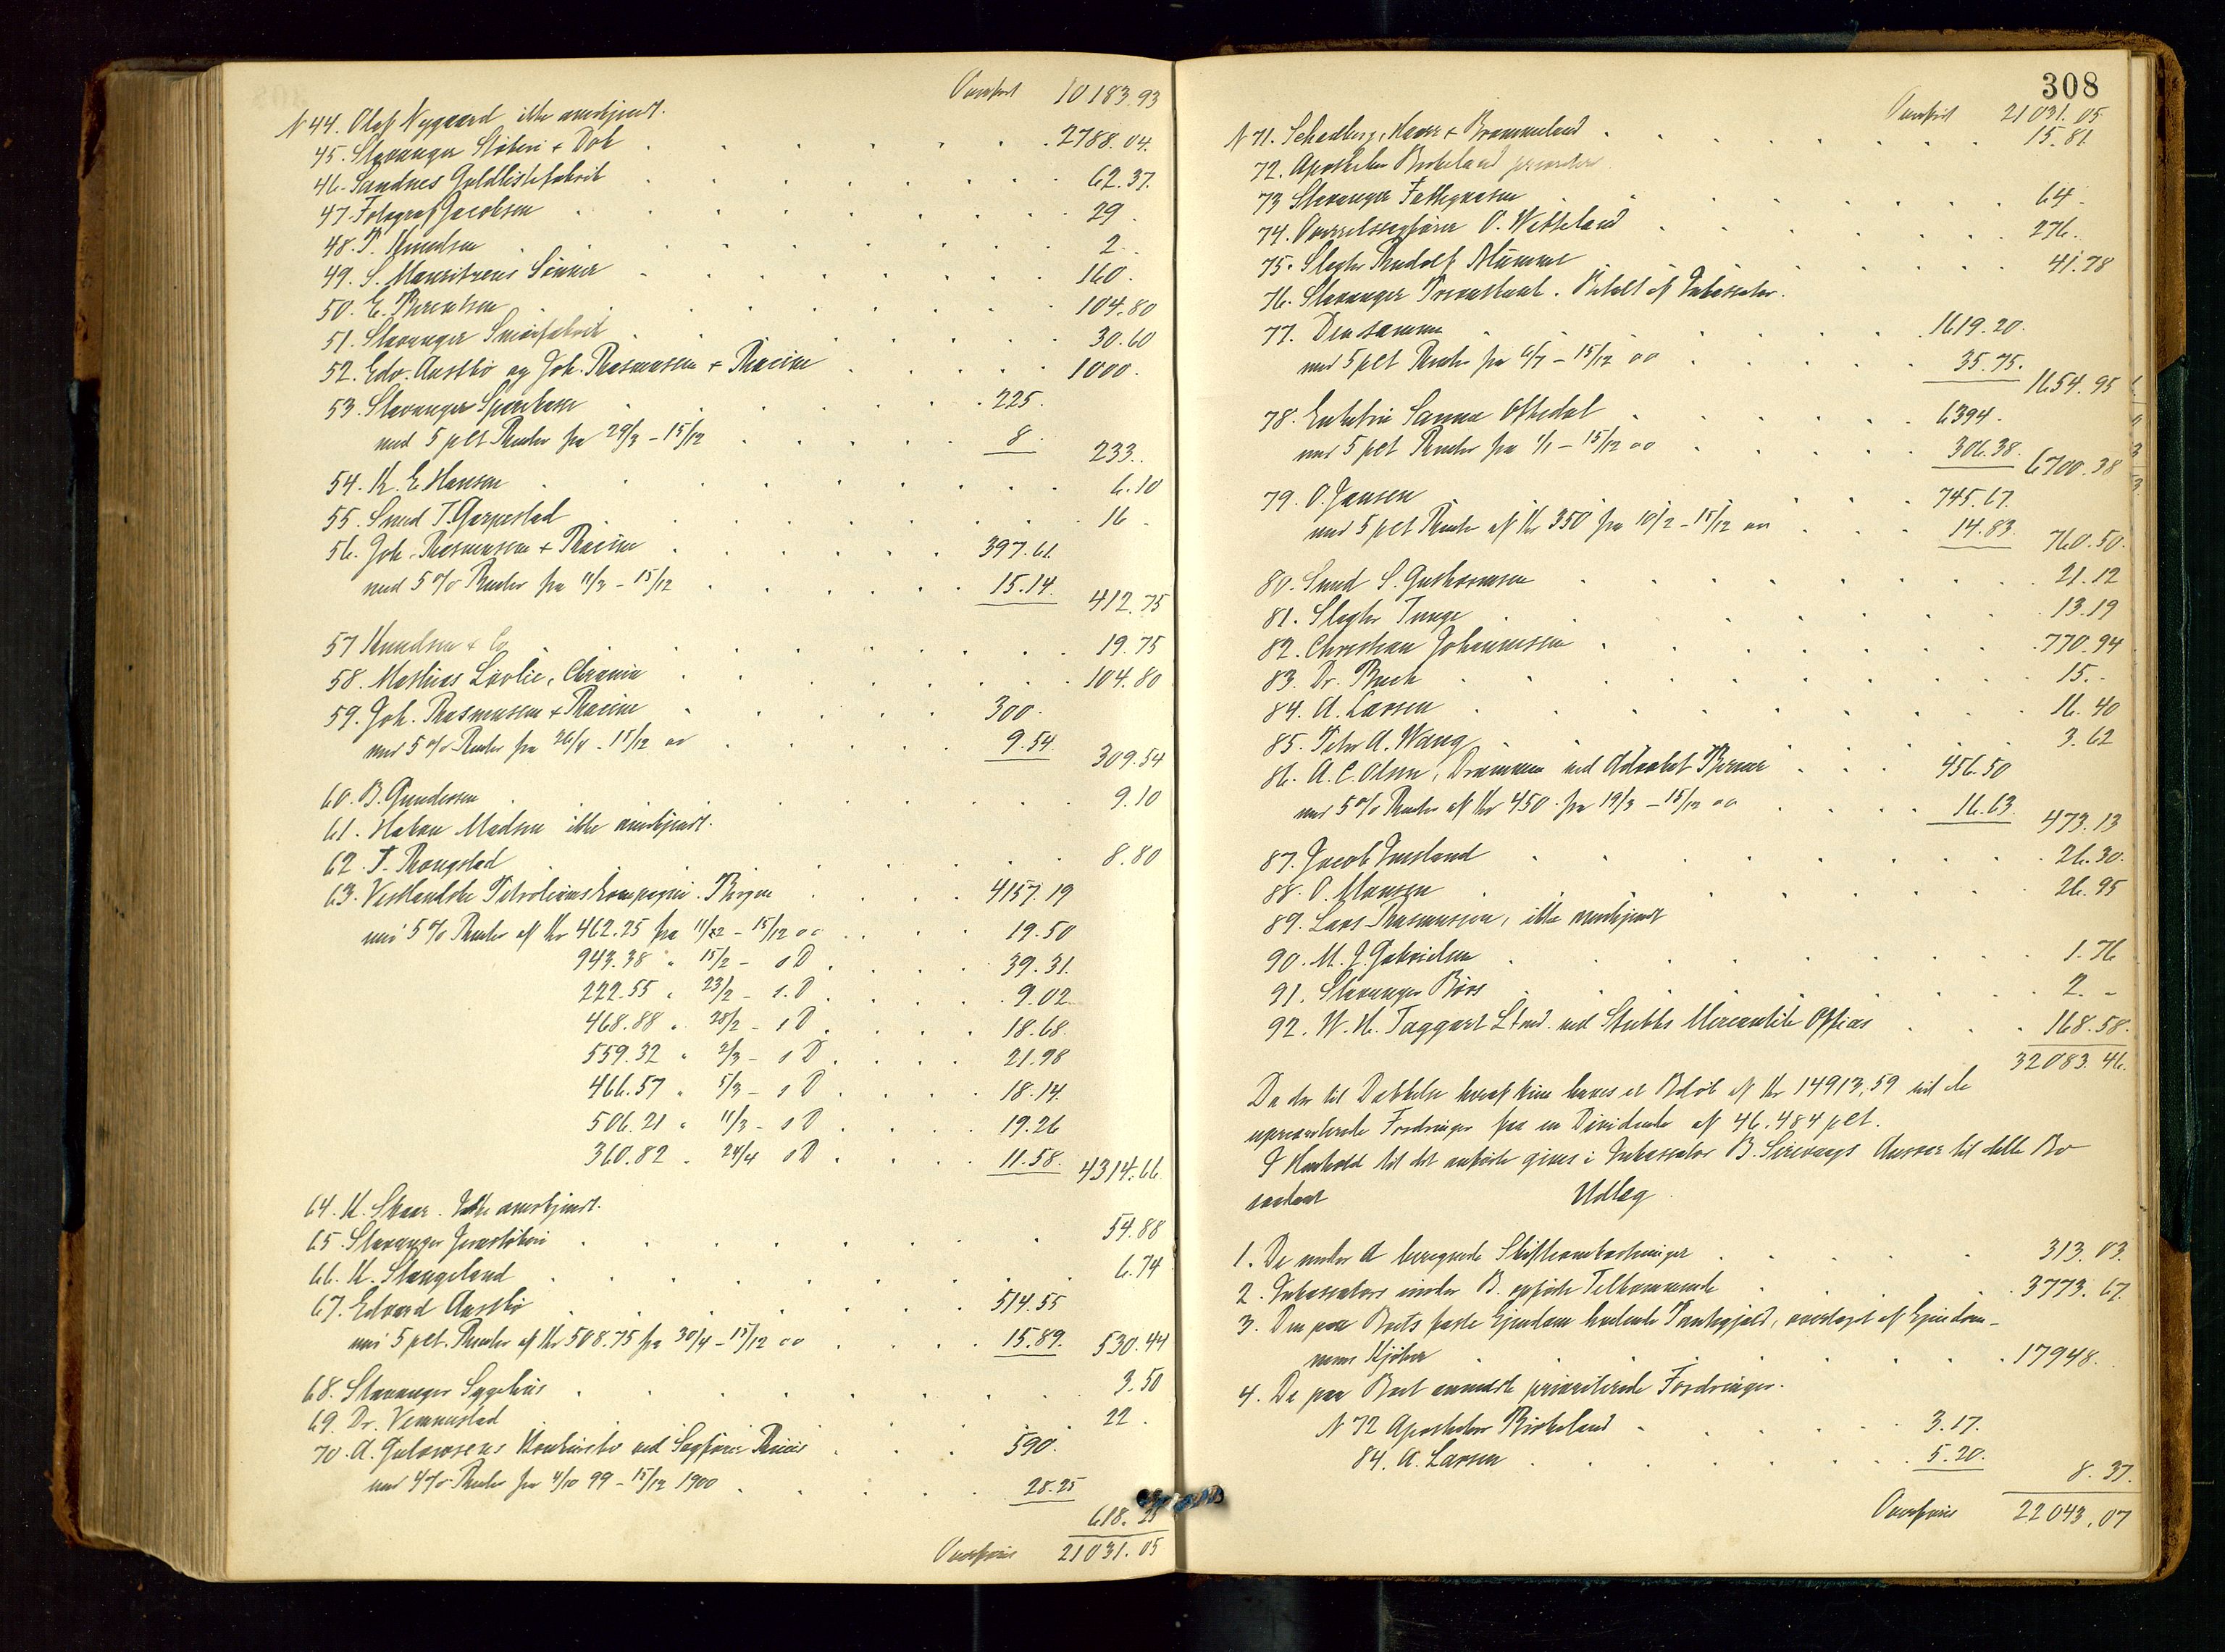 Overført 10183.93
N 44. Olaf Nygaard ikke anerkjendt.
45. Stavanger Støberi & Dok 2788.04.
46. Sandnes Guldlistefabrik 62.37.
47. Fotograf Jacobsen 29.
48. T. Knudsen 2.
49. S. Mauritzens Sønner 160.
50. E. Berentsen 104.80
51. Stavanger Smørfabrik 30.60
52. Edv. Austbø og Joh. Rasmussen & Racine 1000.
53. Stavanger Sparekasse 225.
med 5 pct Renter fra 29/3 - 15/12 8. 233.
54. K. E. Hansen 6.10
55. Smed T. Garpestad 16 -
56. Joh. Rasmussen & Racine 397.61.
med 5 % Renter fra 11/3 - 15/12 15.14. 412.75
57 Knudsen & Co 19.75
58. Mathias Lövlie, Chrania 104.80
59. Joh. Rasmussen & Racine 300.
med 5 % Renter fra 26/4 - 15/12 00 9.54. 309.54
60. B. Gundersen 9.10
61. Hakon Madsen ikke anerkjendt.
62. T. Rongstad 8.80
63. Vestlandske Petroleumskompagni. Bergen 4157.19
med 5 % Renter af Kr 462.25 fra 11/2 - 15/12 00 19.50
943.38 " 15/2 - s D 39.31.
222.55 " 23/2 - s. D 9.02
468.88 " 28/2 - s D 18.68.
559.32 " 2/3 - s D 21.98
466.57 " 5/3 - s D 18.14.
506.21 " 11/3 - s D 19.26
360.82 " 24/4 s D 11.58. 4314.66
64. K. Skaar. Ikke anerkjendt.
65. Stavanger Jernstøberi 54.88
66. K. Stangeland 6.74
67. Edvard Austbø 514.55
med 5 pct. Renter af Kr 508.75 fra 30/4 - 15/12 00 15.89. 530.44
68. Stavanger Sygehus 3.50
69. Dr. Vennestad 22.
70. A. Gulowsens Konkursbo ved Sagfører 590.
med 4 % Renter fra 4/10 99 - 15/12 1900 28.25
618.25
Overføres 21031.05
308
Overført 21031.05
N 71. Schedberg, Haver & Brommeland 15.81
72. Apotheker Birkeland prioritert
73 Stavanger Fattigvæsen 64 -
74. Overretssagfører O. Wetteland 276.
75. Slagter Rudolf Mümmer 41.78
76. Stavanger Privatbank. Betalt af Inkassator.
77. Den samme 1619.20.
med 5 pct Renter fra 6/7 - 15/12 00 35.75. 1654.95
78. Enkefru Sanna Oftedal 6394.
med 5 pct Renter fra 1/1 - 15/12 00 306.38. 6700.38
79. O. Jansen 745.67.
med 5 pct Renter af Kr 350 fra 10/2 - 15/12 00 14.83. 760.50.
80. Smed S. Guthormsen 21.12
81. Slagter Tunge 13.19
82. Christian Johannessen 770.94
83. Dr. Buch 15. -
84. A. Larsen 16.40
85. Peter A. Wang 3.62
86. A. C. Olsen, Drammen ved Advokat Berner 456.50
med 5 % Renter af Kr 450 fra 19/3 - 15/12 00 16.63. 473.13
87. Jacob Imsland 26.30.
88. O. Monsen 26.95
89. Lars Rasmussen, ikke anerkjendt
90. M. J. Gabrielsen 1.76
91. Stavanger Børs 2. -
92. W. H. Taggart Ltmd. ved Stubbs Mercantile Offices 168.58.
32083.46.
Da der til Dækkelse heraf kun haves et Beløb af Kr 14913,59 vil de
uprioriterede Fordringer faa en Dividende af 46.484 pct.
I Henhold til det anførte gives i Inkassator B. Sirevaags Ansvar til dette Bo
saadant Udlæg.
1. De under A beregnede Skifteomkostninger 313.03.
2. Inkassators under B. opførte Tilkommende 3773.67
3. Den paa Boets faste Ejendom heftende Pantegjæld, overtaget af Ejendom-
mens Kjøber 17948.
4. De paa Boet anmeldte prioriterede Fordringer.
N 72 Apotheker Birkeland 3.17.
84. A. Larsen 5.20.
8.37.
Overføres 22043.07